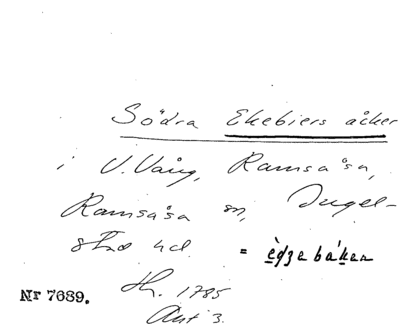 Södra Ekebiers åker
i V. Vång, Ramsåsa,
Ramsåsa sn, Ingel-
stad hd. = èdʒebáken
Nr 7689. Hr. 1785
Akt 3.